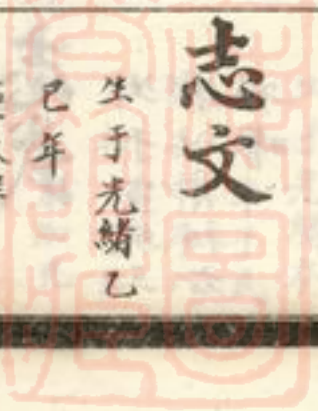 志文
生于光緒乙
巳年